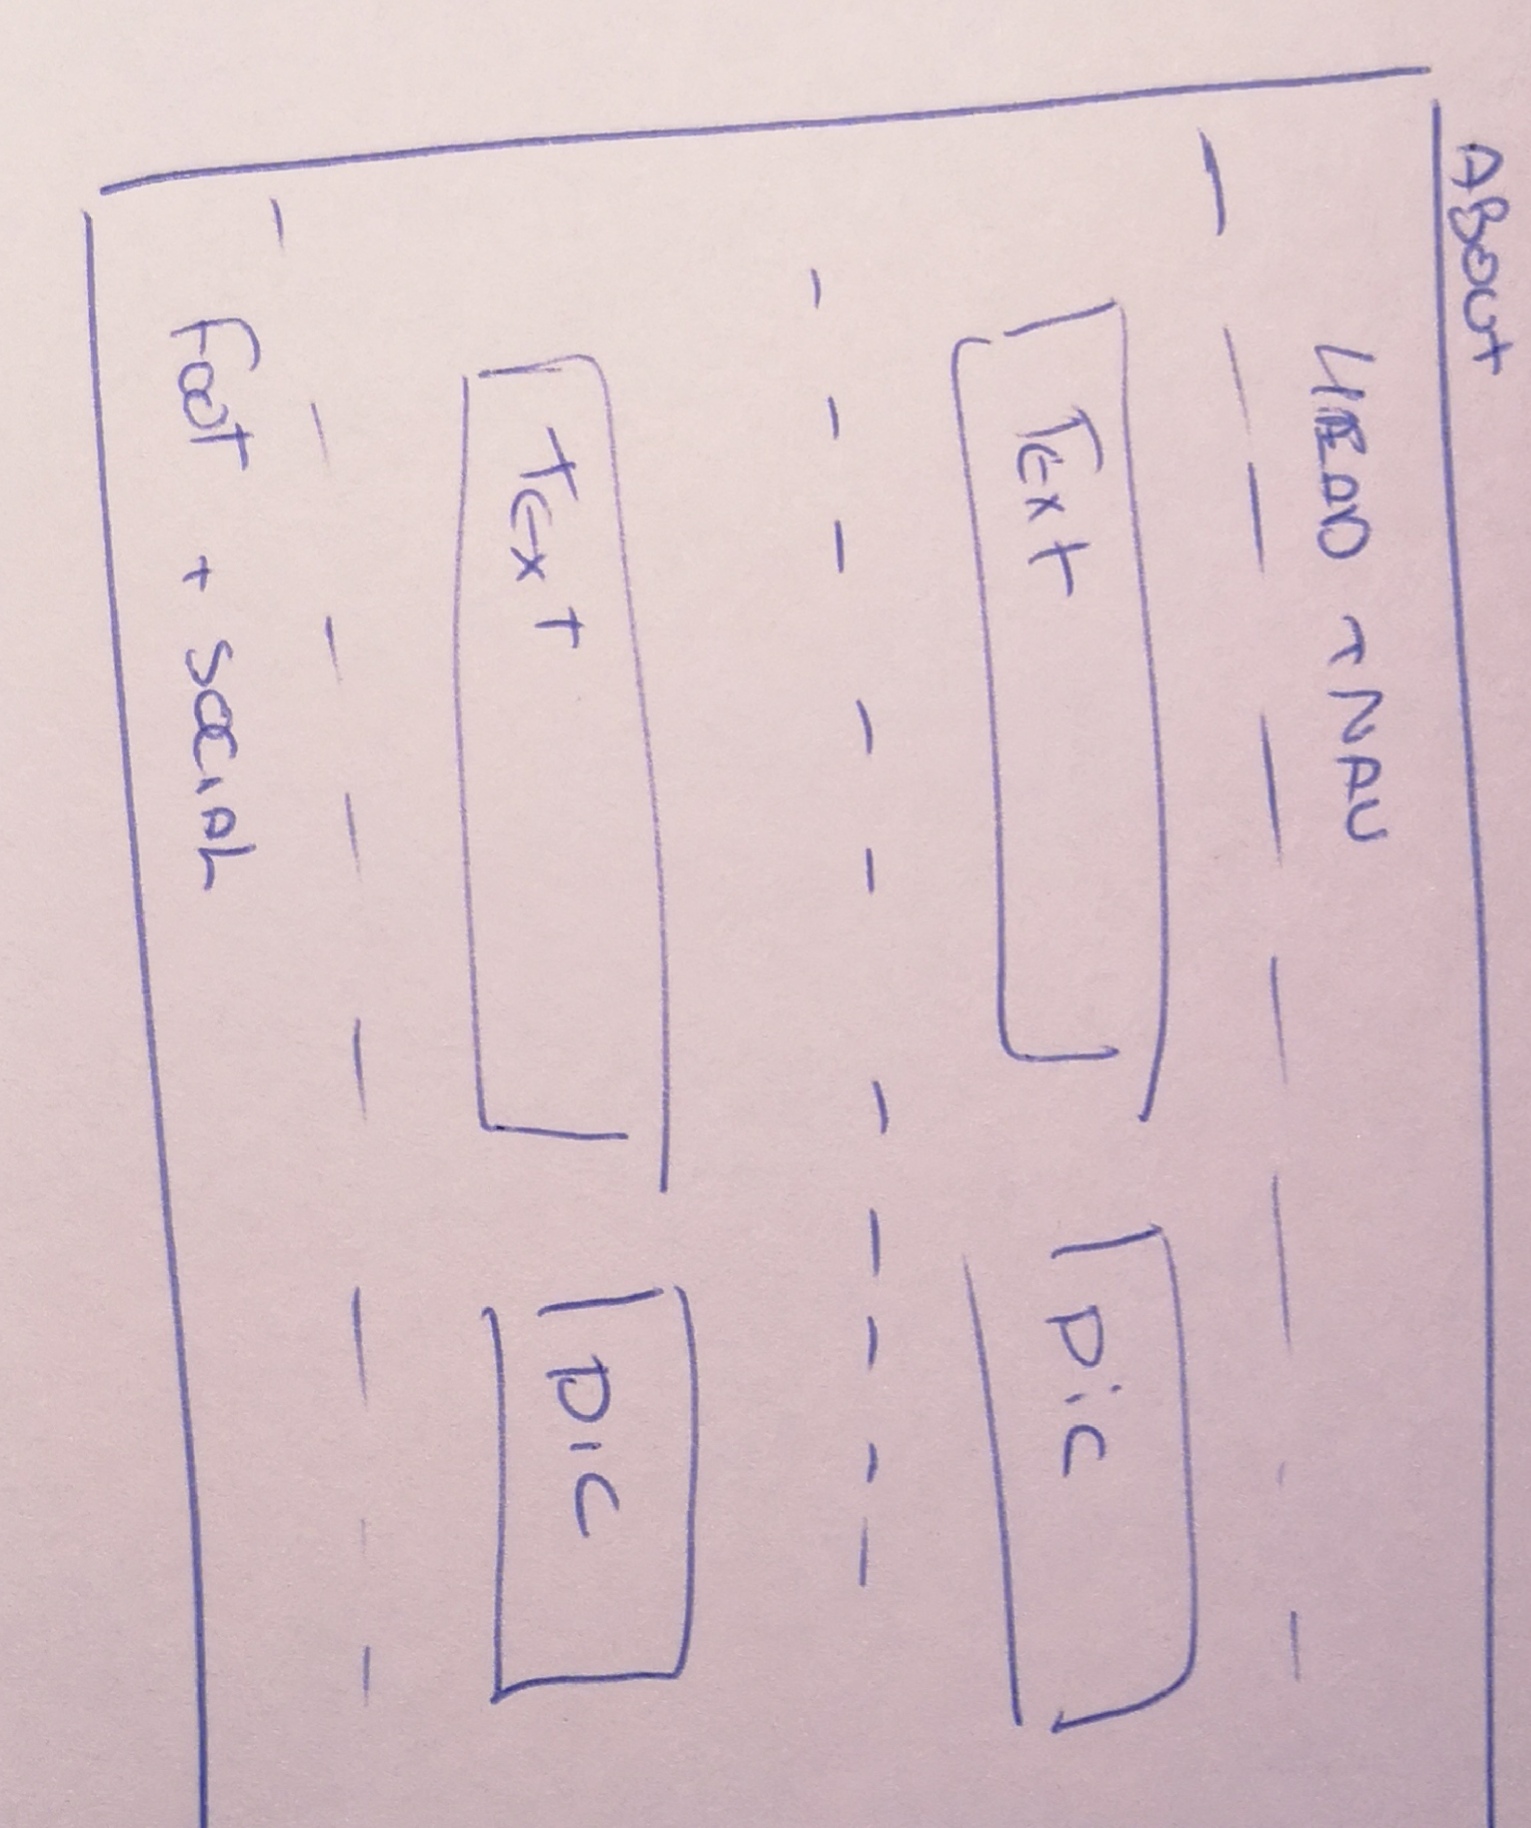 ABOUT
HEAD + NAV
Text
Pic
Text
PIC
Foot + SOCIAL